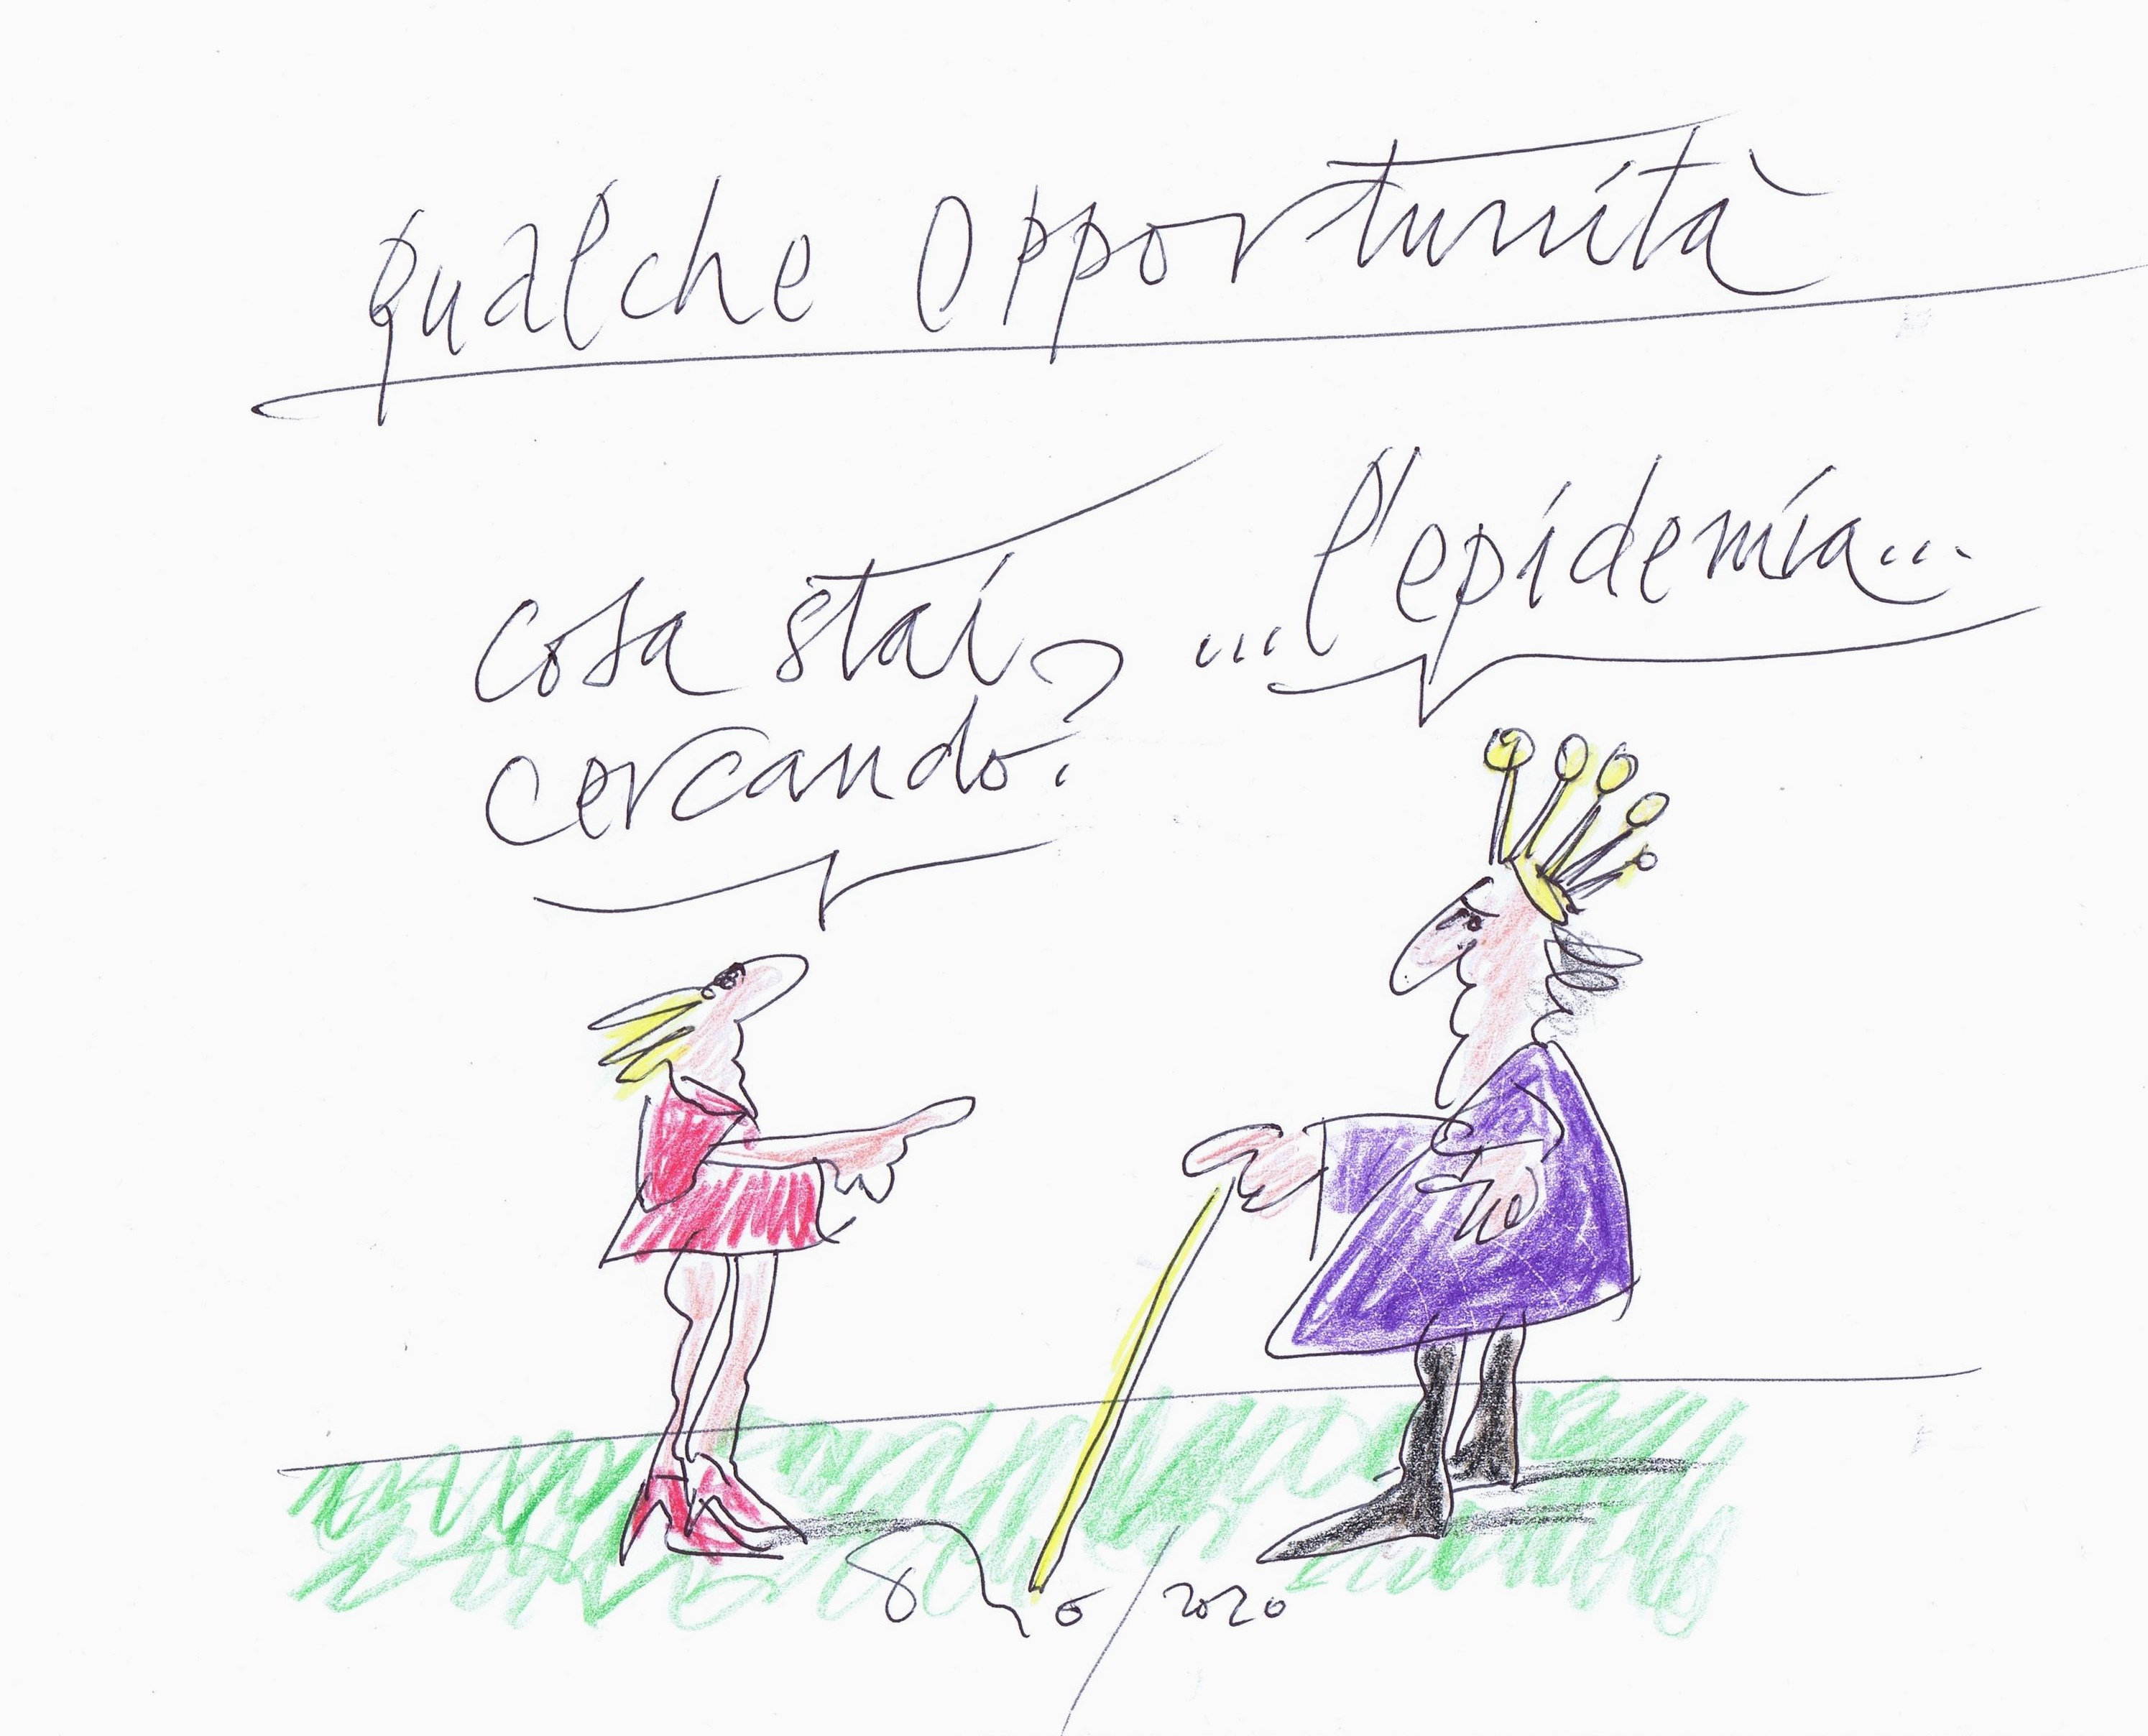 Qualche Opportunità
cosa stai
cercando?
...l'epidemia...
6/2020